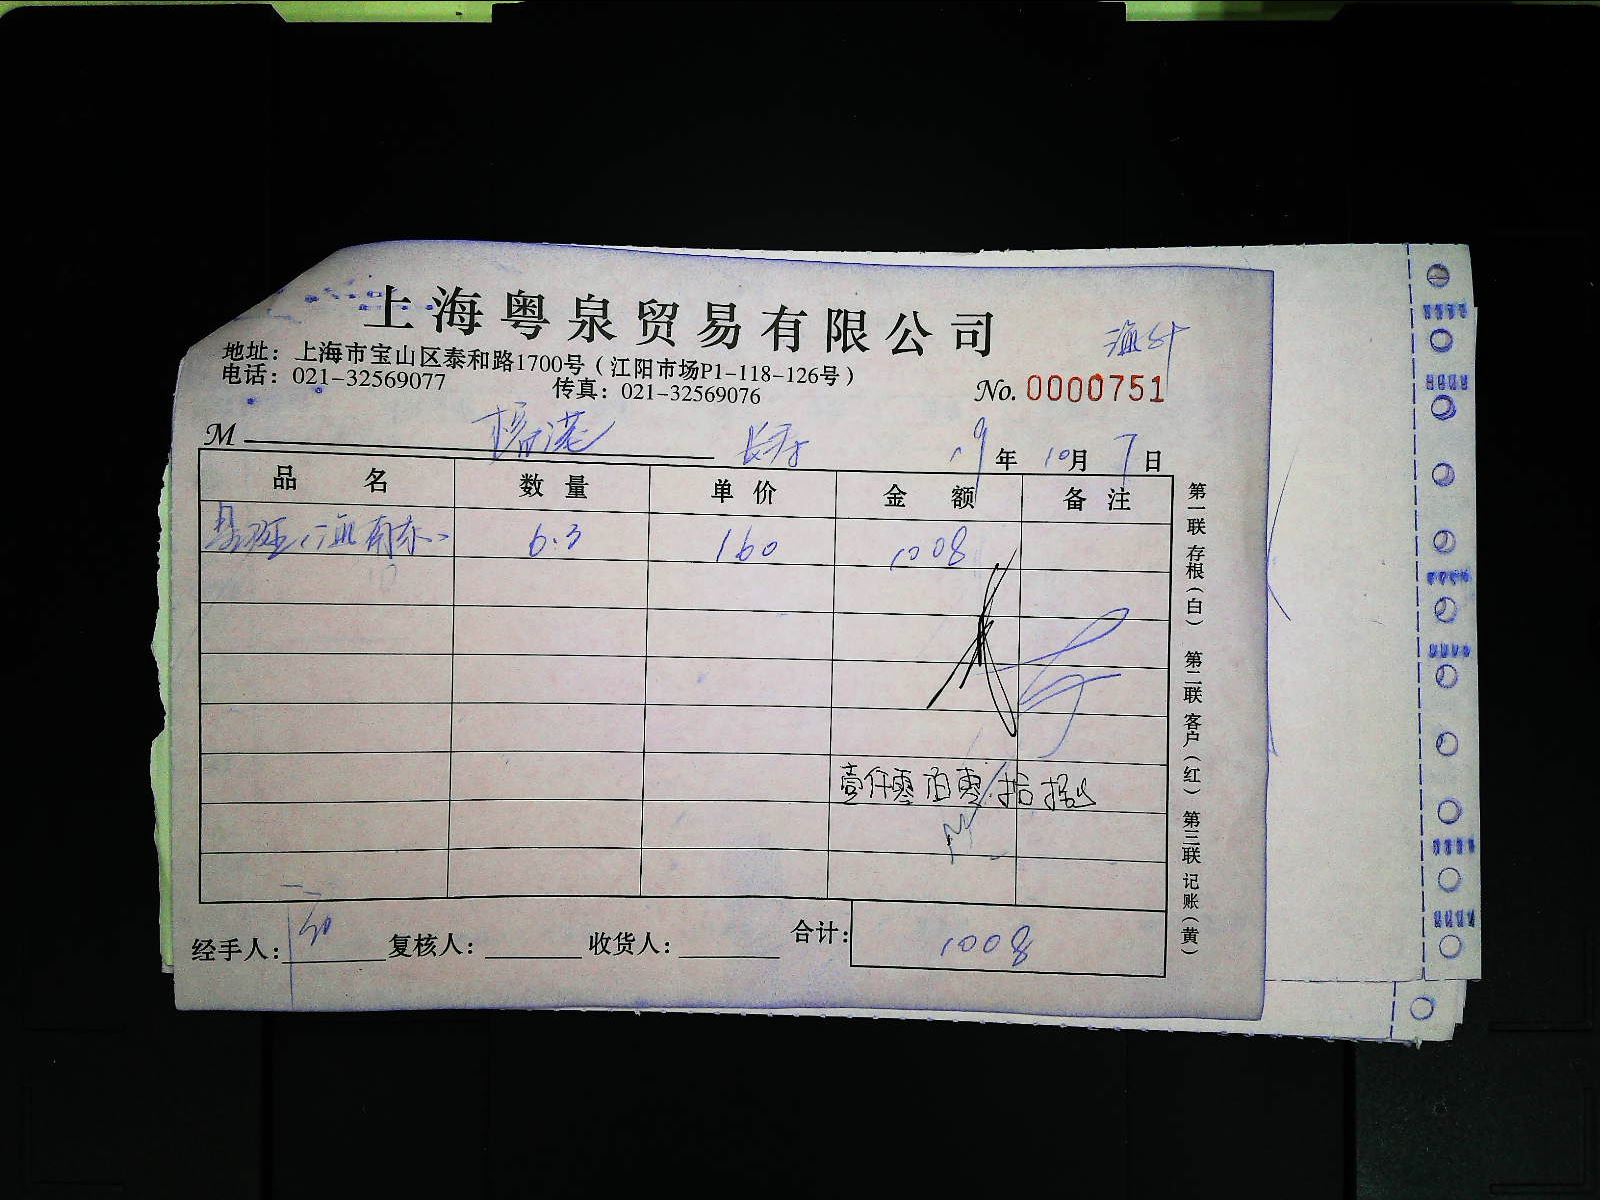 上海粤泉贸易有限公司
地址：上海市宝山区泰和路1700号（江阳市场P1-118-126号）
电话：021-32569077 传真：021-32569076
No. 0000751
M 长寿 19年10月7日
品名 数量 单价 金额 备注
星斑（海南东） 6.3 160 1008
壹仟零佰零拾捌
经手人： 复核人： 收货人： 合计： 1008
第一联 存根（白） 第二联 客户（红） 第三联 记账（黄）